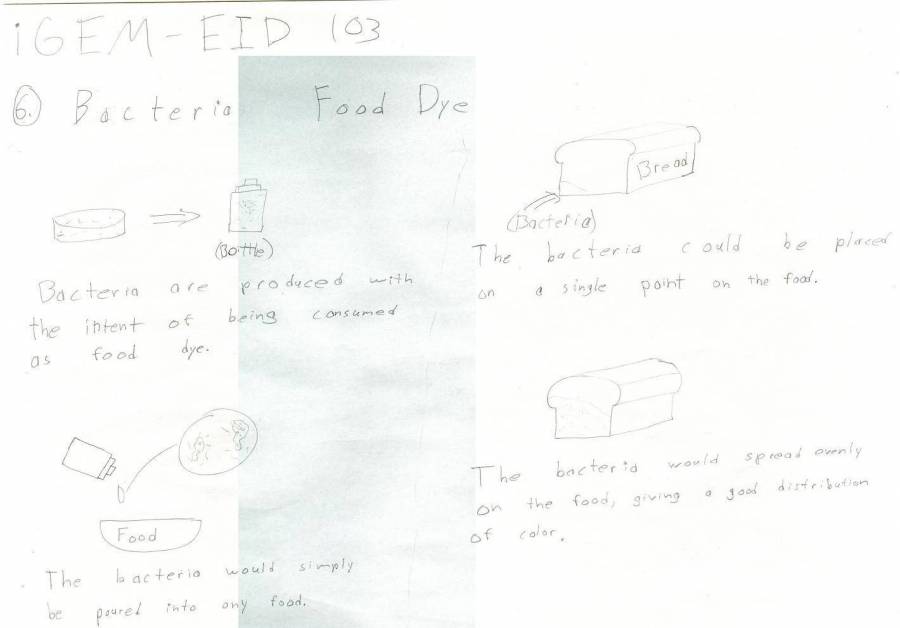 iGEM-EID 103
6. Bacteria Food Dye
(Bottle)
Bacteria are produced with
the intent of being consumed
as food dye.
Food
The bacteria would simply
be poured into any food.
Bread
(Bacteria)
The bacteria could be placed
on a single point on the food.
The bacteria would spread evenly
on the food, giving a good distribution
of color.